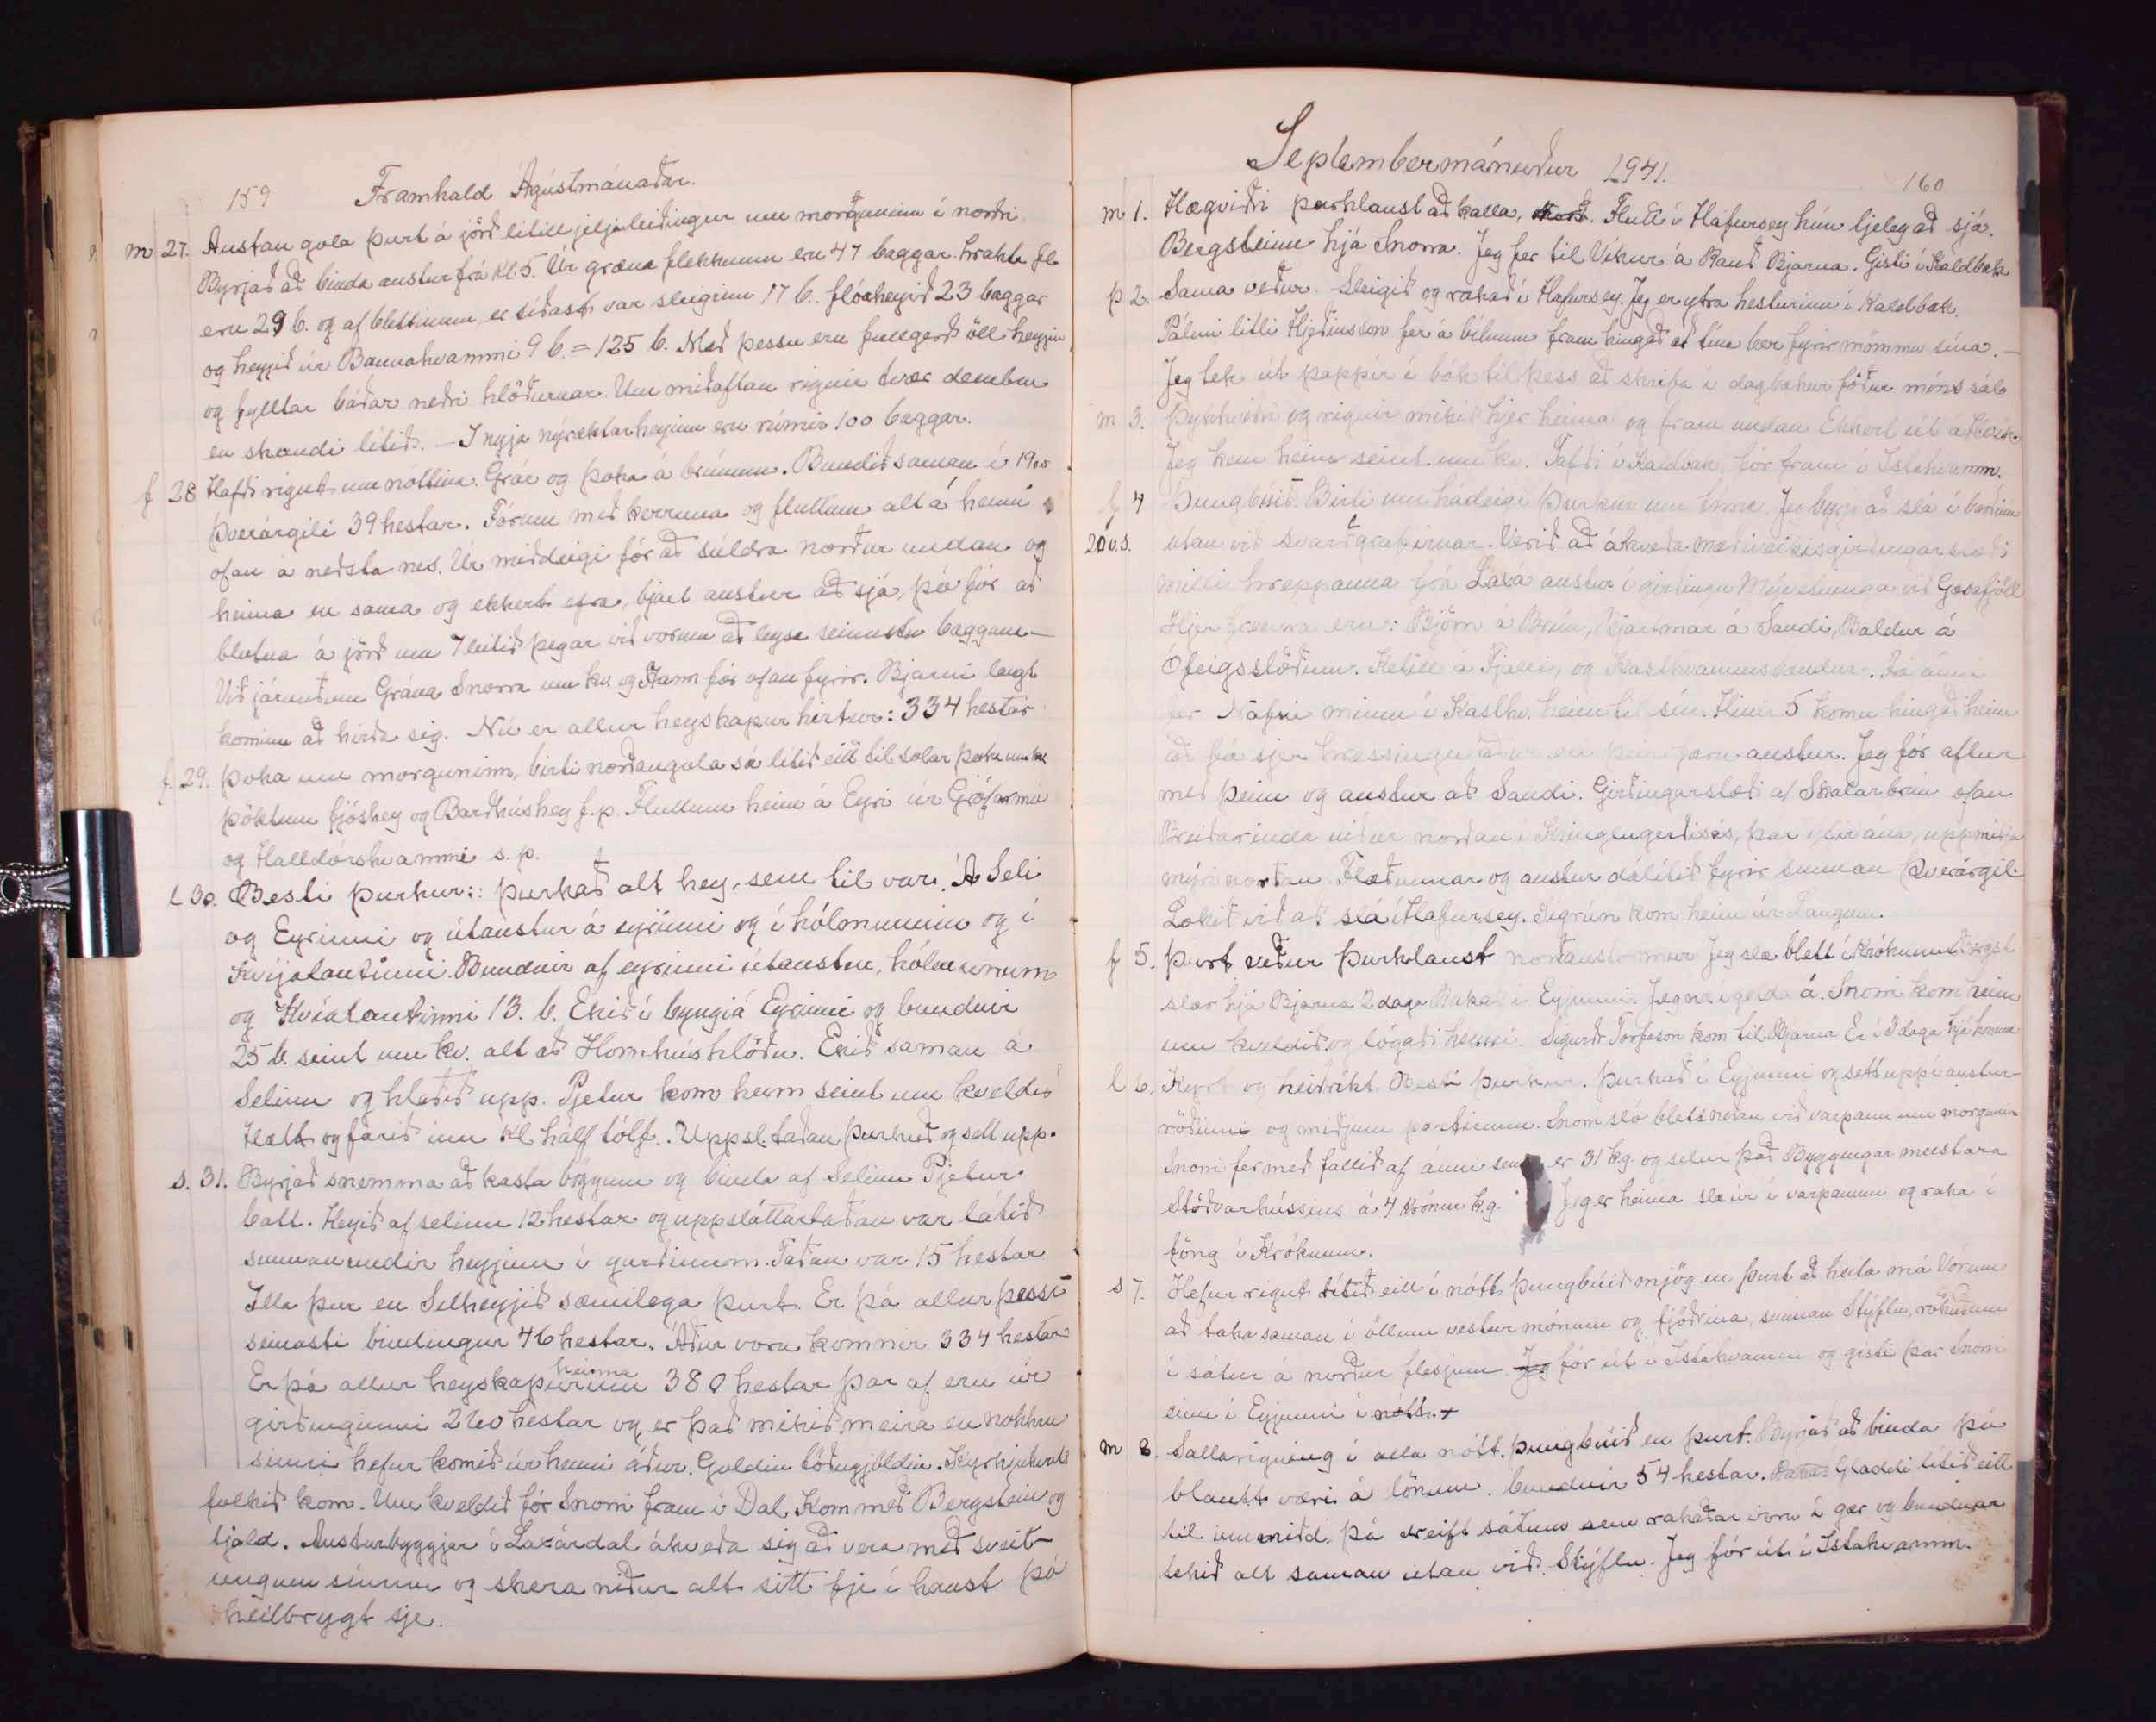 159 Framhald Ágústmánaðar.
m 27. Austan gola þurt á jörð litill jeljaleiðingur um morguninn í norðri
Byrjað að binda austur frá kl. 5. Úr græna flekknum eru 47 baggar. hrakta fl.
eru 29 b. og af blettinum, er síðast var sleginn 17 b. flóaheyið 23 baggar
og heyjið úr Bannahvammi 9 b. = 125 b. Með þessu eru fullgerð öll heyjin
og fylltar báðar neðri hlöðurnar. Um miðaftan rignir tvær dembur
en skandi lítið. — I nyja nýræktarheyinu eru rúmir 100 baggar.
f 28 Hafði rignt um nóttina. Gráe og þoka á brúnum. Bundið saman í
Þverárgili 39 hestar. Fórum með kerruna og fluttum alt á henni
ofan á neðsta nes. Úr miðdeigi fór að súldra norður undan og
heima en sama og ekkert efra, bjart austur að sjá, þó fór að
blotna á jörð um 7 leitið þegar við vorum að leysa seinustu baggana —
Við járnuðum Grána Snorra um kv. og Hann fór ofan fyrir. Bjarni langt
kominn að hirða sig. Nú er allur heyskapur hirtur: 334 hestar
f. 29. Þoka um morguninn, birti norðangola sá lítið eitt til solar Þoka um kv.
þöktum fjóshey og Barðhúshey f. p. Fluttum heim á Eyri úr Grófarma
og Halldórshvammi s. p.
l 30. Besti þurkur:: þurkað alt hey, sem til var. Á Seli
og Eyrinni og útaustur á eyrinni og í hólmunum og í
Kvíjalautinni. Bundnir af eyrinni útaustur, hólmunum
og Kvíalautinni 13. b. Ekið í byngiá Eyrinni og bundnir
25 b. seint um kv. alt að Hornhúshlöðu. Ekið saman á
Selinu og hlaðið upp. Pjetur kom heim seint um kveldið
Hætt og farið inn kl. hálf tólf. Uppsl. taðan þurkuð og sett upp.
s. 31. Byrjað snemma að kasta böggum og binda af Selinu Pjetur
batt. Heyið af selinu 12 hestar og uppsláttartaðan var látið
sunnanundir heyjinu í garðinum. Taðan var 15 hestar
Illa þur en Selheyjið sæmilega þurt. Er þá allur þessi
seinasti bindingur 46 hestar. Áður voru komnir 334 hestar
Er þá allur heyskapurinn heima 380 hestar þar af eru úr
girðingunni 260 hestar og er það mikið meira en nokkru
sinni hefur komið úr henni áður. Goldin töðugjöldin.
fólkið kom. Um kveldið fór Snorri fram í Dal. Kom með Bergstein og
tjald. Austurbyggjar í Laxárdal ákveða sig að vera með sveit-
ungum sínum og skera niður alt sitt fje í haust þó
heilbrygt sje.
Septembermánuður 1941. 160
m 1. Hægviðri þurklaust að kalla. Flutt í Hafursey hún ljeleg að sjá.
Bergsteinn hjá Snorra. Jeg fer til Víkur á Rauð Bjarna. Gisti í Kaldbak
þ 2. Sama veður. Slegið og rakað í Hafursey. Jeg er ytra hesturinn í Kaldbak.
Pálmi litli Hjeðinsson fer á bílnum fram hingað að tína ber fyrir mömmu sína. —
Jeg tek út pappír í bók til þess að skrifa í dagbækur föður míns sál.
m 3. Þykkviðri og rignir mikið hjer heima og fram undan Ekkert út á Húsv.
Jeg kem heim seint um kv. Tafði í Kaldbak, fór fram í Istahvamm.
f 4 Þungbúið. Birti um hádeigi Þurkur um tíma. Jeg byrja að slá í
20 v. s. utan við svarðgrafirnar. Verið að ákveða mæðiveikisgirðingarstæði
milli hreppanna frá Laxá austur í girðingu Mývetninga við Gæsafjöll
Hjer fremra eru: Björn á Brún, Bjartmar á Sandi, Baldur á
Ófeigsstöðum. Ketill á Fjalli, og Kasthvammsbændur. Frá ánni
fer Nafni minn í Kasthv. heim til sín. Hinir 5 komu hingað heim
að fá sjer hressingu áður en þeir fóru austur. Jeg fór aftur
með þeim og austur að Sandi. Girðingarstæði af Skatarbrún ofan
Breiðarinda niður norðan í Kringlugerðisás, þar yfir ána, upp miðja
mýri norðan Flæðunnar og austur dálítið fyrir sunnan Þverárgil
Lokið við að slá í Hafursey. Sigrún kom heim úr Laugum.
f 5. Þurt veður Þurklaust norðaustormur Jeg slæ blett í Króknum Bergst.
slær hjá Bjarna 2 daga Rakað í Eyjunni. Jeg næ í gelda á. Snorri kom heim
um kveldið og lógaði henni. Sigurð Torfason kom til Bjarna Er í 3 daga hjá honum
l 6. Kyrt og heiðríkt Besti þurkur. Þurkað í Eyjunni og sett upp í austur-
röðinni og miðjum partinum. Snorri sló blett neðan við varpann um morguninn
Snorri fer með fallið af ánni sem er 31 kg. og selur það Byggingar meistara
Stöðvarhússins á 4 krónur kg. Jeg er heima slæ úr í varpanum og raka í
föng í Króknum.
s 7. Hefur rignt lítið eitt í nótt Þungbúið mjög en þurt að heita má Vorum
að taka saman í öllum vestur mónum og fjöðrina, sunnan Stýflu, rökuðum
í sátur á norður flesjum. Jeg fór út í Istahvamm og gisti þar Snorri
einn í Eyjunni í nótt. +
m 8. Sallarigning í alla nótt. Þungbúið en þurt. Byrjað að binda þó
blautt væri á lönum. bundnir 54 hestar. Gladdi lítið eitt
til um miðd. þá dreift sátum sem rakaðar voru í gær og bundnar
tekið alt saman utan við Stýflu. Jeg fór út í Istahvamm.